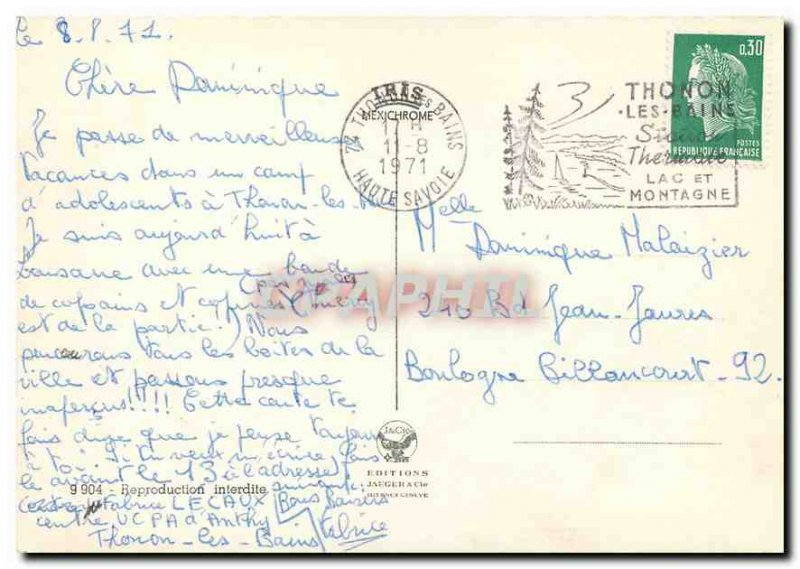 le 8.8.71.
Chère Dominique
Je passe de merveilleuses
vacances dans un camp
d'adolescents à Thonon-les
Je suis aujourd'hui à
Lausane avec une bande
de copains et copines
est de la partie.) Nous
parcourons tous les boites de la
ville et passons presque
inaperçus!!!! Cette carte te
fais dire que je pense toujours
à toi. Si tu veux m'écrire, fais
le avant le 13 à l'adresse
suivante:
Fabrice LECAUX Bons Baisers
centre UCPA d'Anthy Fabrice
Thonon-les-Bains
IRIS
MEXICHROME
74 THONON LES BAINS
17 H
11-8
1971
HAUTE SAVOIE
THONON
·LES-BAINS
Station
Thermale
LAC ET
MONTAGNE
0,30
POSTES
REPUBLIQUE FRANÇAISE
Melle
Dominique Malaizier
210 Bd Jean-Jaures
Boulogne Billancourt-92.
CPAPHIL
EDITIONS
JAEGER & Cie
9 904 - Reproduction interdite